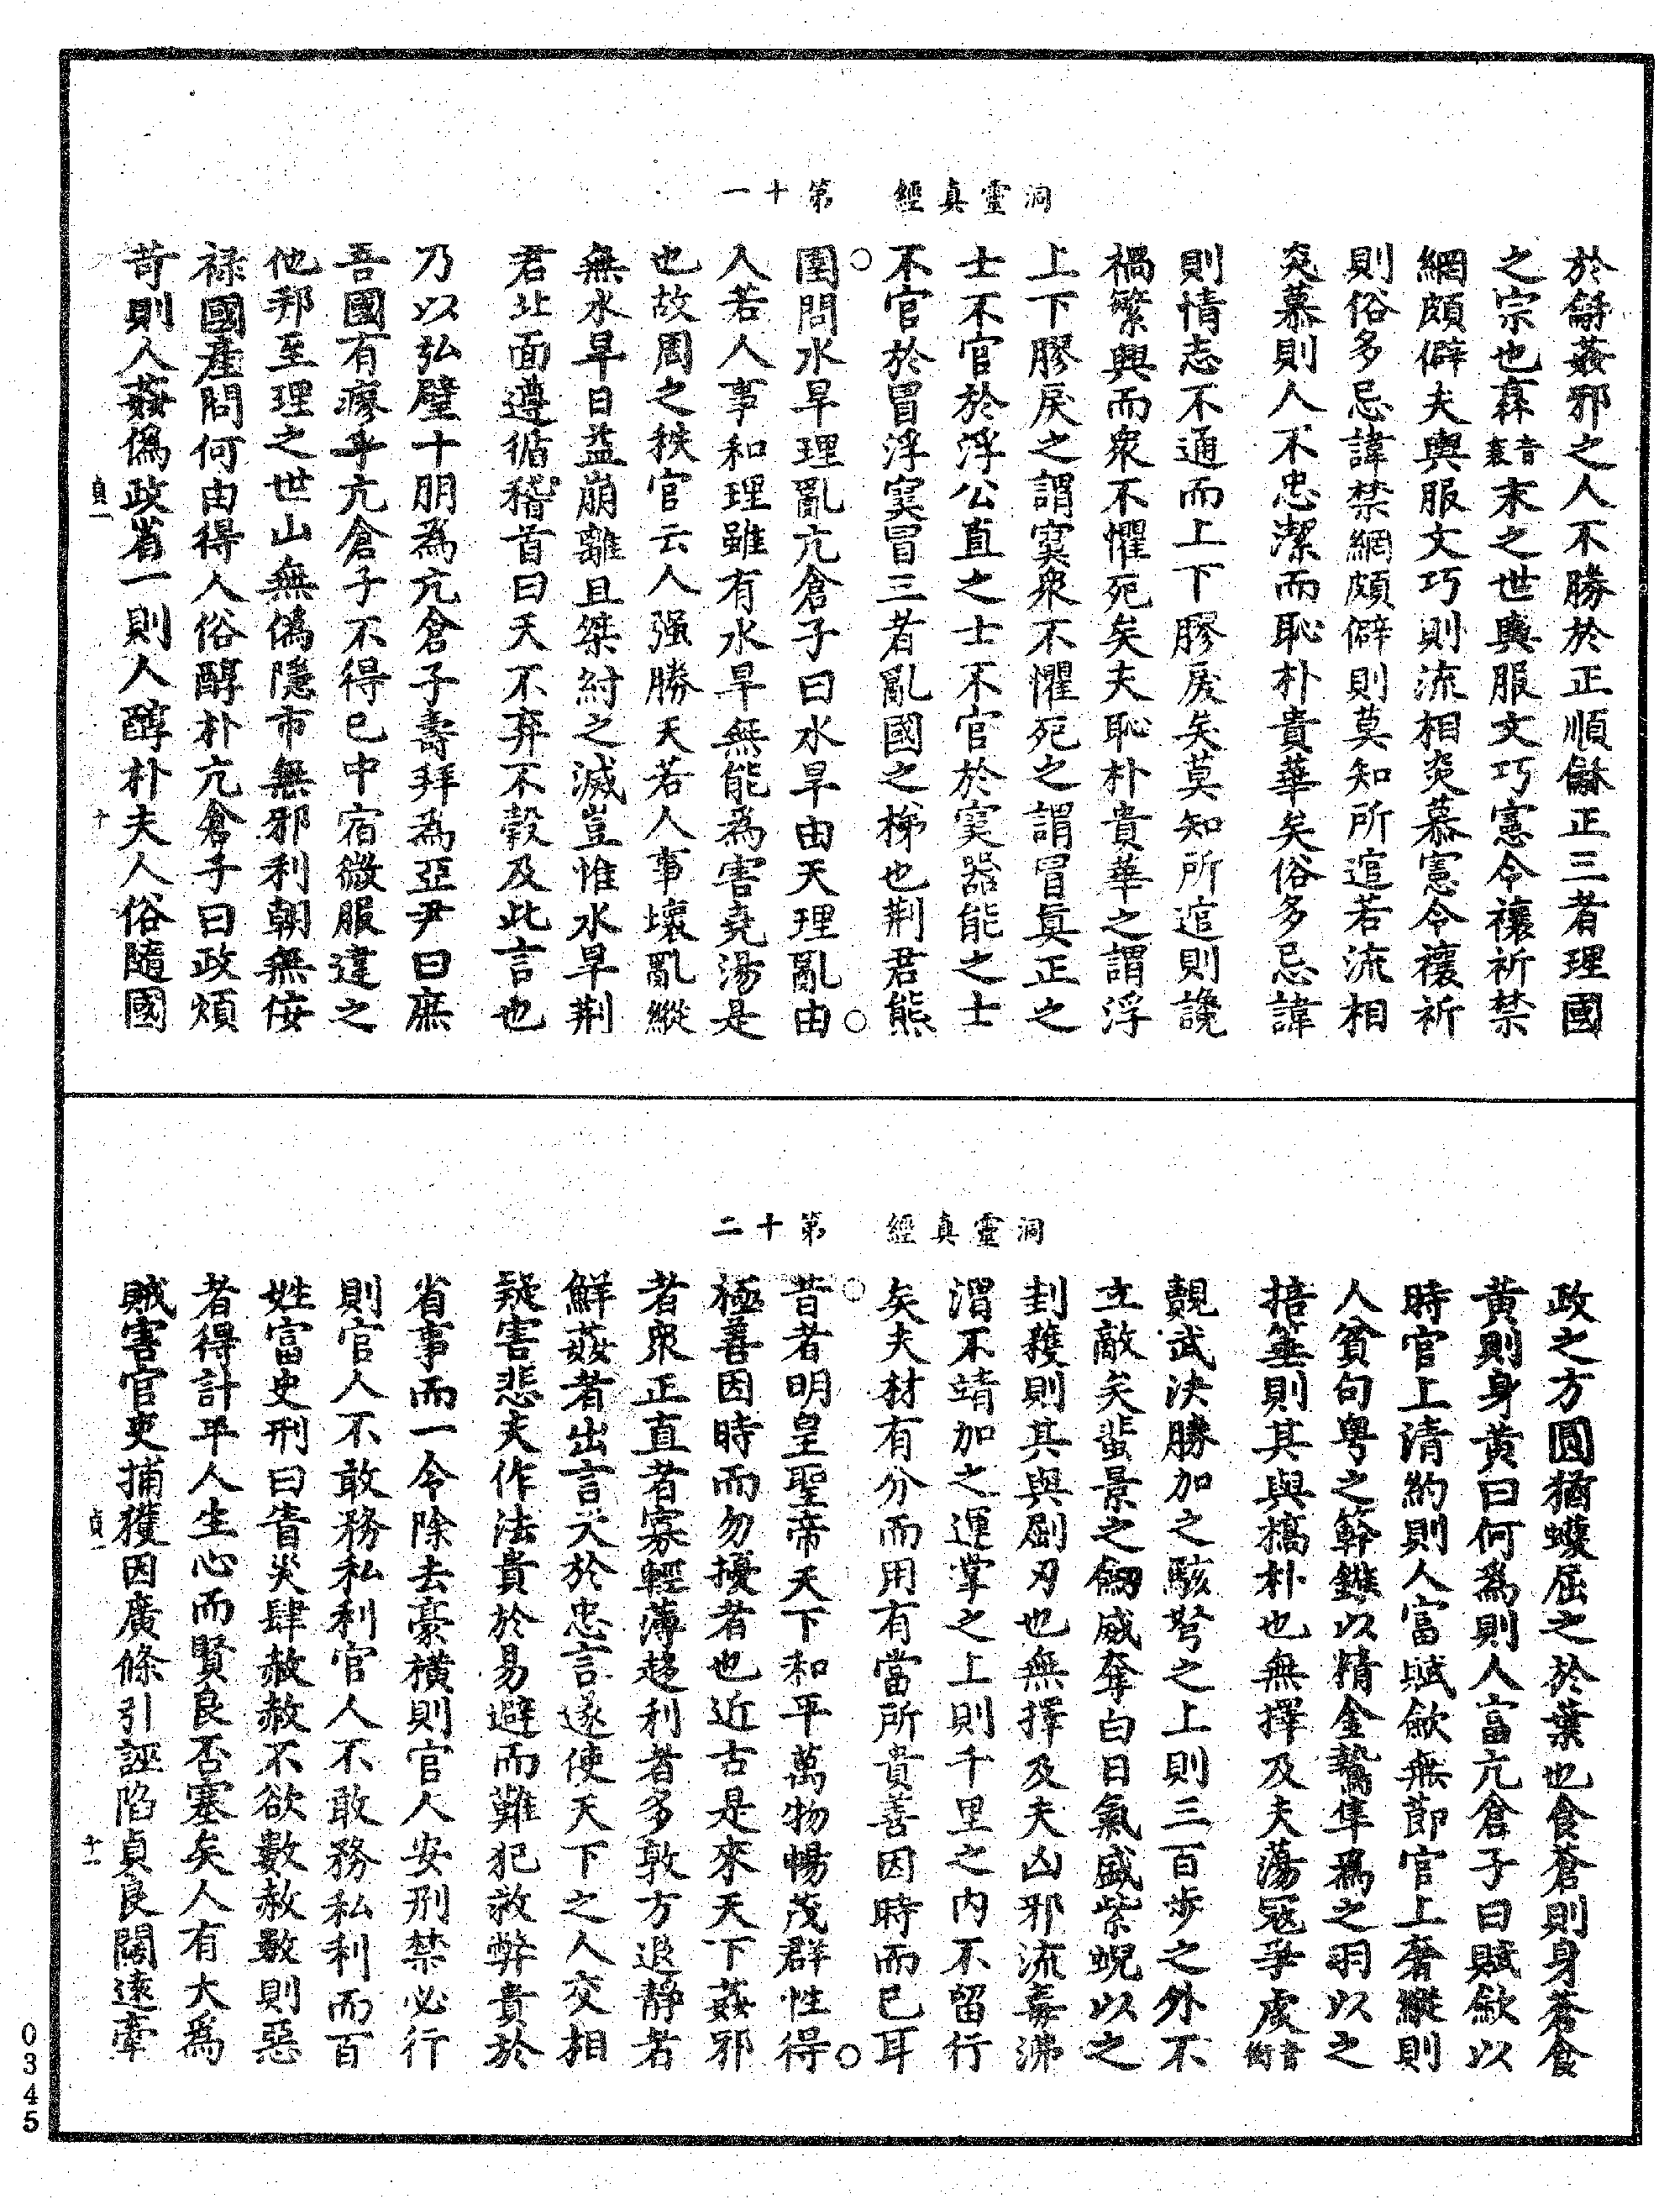 洞靈真經　第十一
於辭姦邪之人不勝於正順辭正三者理國
之宗也㐮音衰末之世輿服文巧憲令禳祈禁
網頗僻夫輿服文巧則流相炎慕憲令禳祈
則俗多忌諱禁網頗僻則莫知所逭若流相
炎慕則人不忠潔而恥朴貴華矣俗多忌諱
則情志不通而上下膠戾矣莫知所逭則讒
禍繁興而衆不懼死矣夫恥朴貴華之謂浮
上下膠戾之謂寞衆不懼死之謂冒真正之
士不官於浮公直之士不官於寞器能之士
不官於冒浮寞冒三者亂國之梯也荆君熊
圉問水旱理亂亢倉子曰水旱由天理亂由
人若人事和理雖有水旱無能爲害堯湯是
也故周之秩官云人强勝天若人事壞亂縱
無水旱日益崩離且桀紂之滅豈惟水旱荆
君北面遵循稽首曰天不弃不穀及此言也
乃以弘璧十朋爲亢倉子壽拜爲亞尹曰庶
吾國有瘳乎亢倉子不得已中宿微服違之
他邦至理之世山無僞隱市無邪利朝無佞
禄國產問何由得人俗醇朴亢倉子曰政煩
苛則人姦僞政省一則人醇朴夫人俗隨國
貞一
十
洞靈真經　第十二
政之方圓猶蠖屈之於葉也食蒼則身蒼食
黄則身黄曰何爲則人富亢倉子曰賦斂以
時官上清約則人富賦斂無節官上奢縱則
人貧句粤之簳鏃以精金鷙隼爲之羽以之
掊箠則其與槁朴也無擇及夫蕩寇爭虔音衙
覿武決勝加之駭弩之上則三百步之外不
立敵矣蜚景之劒威奪白日氣盛紫蜺以之
刲穫則其與劘刃也無擇及夫凶邪流毒沸
渭不靖加之運掌之上則千里之内不留行
矣夫材有分而用有當所貴善因時而已耳
昔者明皇聖帝天下和平萬物暢茂群性得
極善因時而勿擾者也近古是來天下姦邪
者衆正直者寡輕薄趨利者多敦方退靜者
鮮姦者出言大於忠言遂使天下之人交相
疑害悲夫作法貴於易避而難犯救弊貴於
省事而一令除去豪橫則官人安刑禁必行
則官人不敢務私利官人不敢務私利而百
姓富史刑曰眚災肆赦赦不欲數赦數則惡
者得計平人生心而賢良否塞矣人有大爲
賊害官吏捕獲因廣條引誣陷貞良闊遠牽
貞一
十一
0345